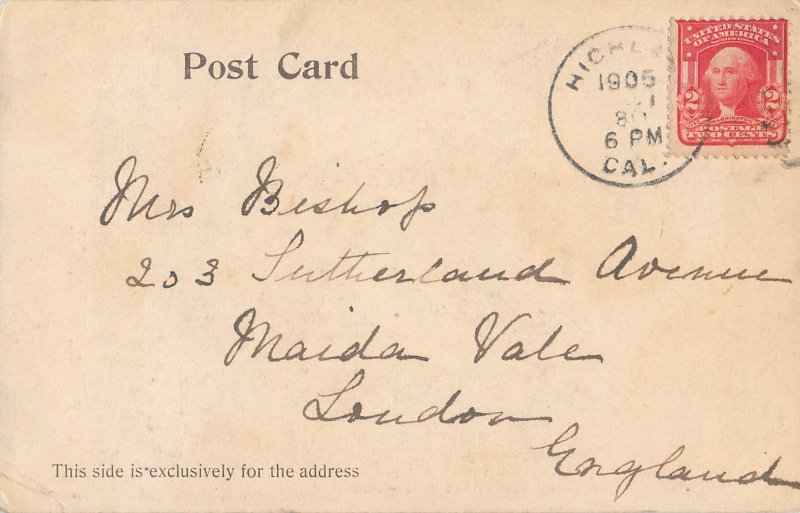 Post Card
1905
30
6 PM
CAL.
UNITED STATES
OF AMERICA
2 2
WASHINGTON
POSTAGE
TWO CENTS
Mrs Bishop
203 Sutherland Avenue
Maida Vale
London
England
This side is exclusively for the address